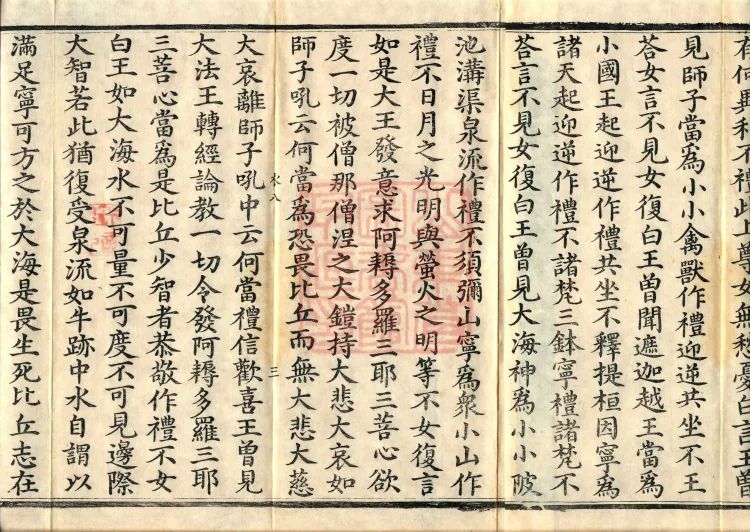 有何異利不禮此上尊女無愁憂白言王曾
見師子當爲小小禽獸作禮迎逆共坐不王
荅女言不見女復白王曾聞遮迦越王當爲
小國王起迎逆作禮共坐不釋提桓因寧爲
諸天起迎逆作禮不諸梵三鉢寧禮諸梵不
荅言不見女復白王曾見大海神爲小小陂
池溝渠泉流作禮不須彌山寧爲衆小山作
禮不日月之光明與螢火之明等不女復言
如是大王發意求阿耨多羅三耶三菩心欲
度一切被僧那僧涅之大鎧持大悲大哀如
師子吼云何當爲恐畏比丘而無大悲大慈
衣八 三
大哀離師子吼中云何當禮信歡喜王曾見
大法王轉經論教一切令發阿耨多羅三耶
三菩心當爲是比丘少智者恭敬作禮不女
白王如大海水不可量不可度不可見邊際
大智若此猶復受泉流如牛跡中水自謂以
滿足寧可方之於大海是畏生死比丘志在